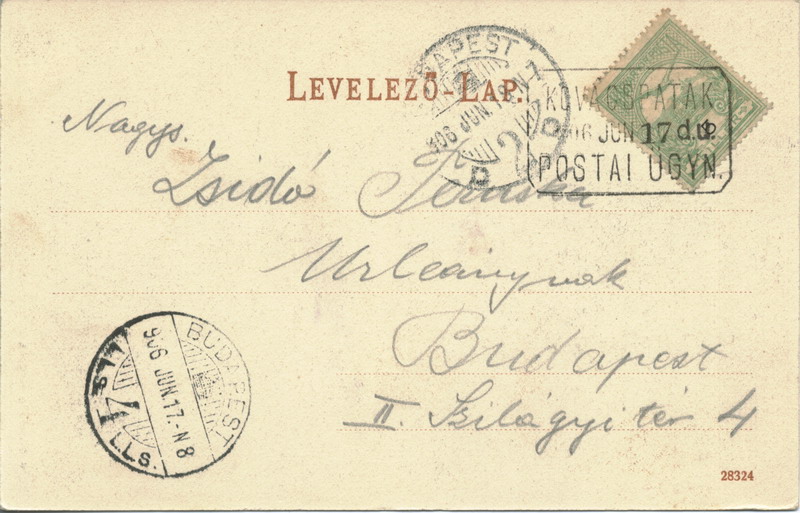 LEVELEZŐ-LAP.
BUDAPEST 7
906 JUN 17 N 7
D D
KOVÁCSPATAK
906 JUN 17 d.u.
POSTAI ÜGYN.
Nagys.
Zsidó Teruska
Urleánynak
Budapest
II. Szilágyi tér 4
BUDAPEST
906 JUN.17.-N 8
7
28324